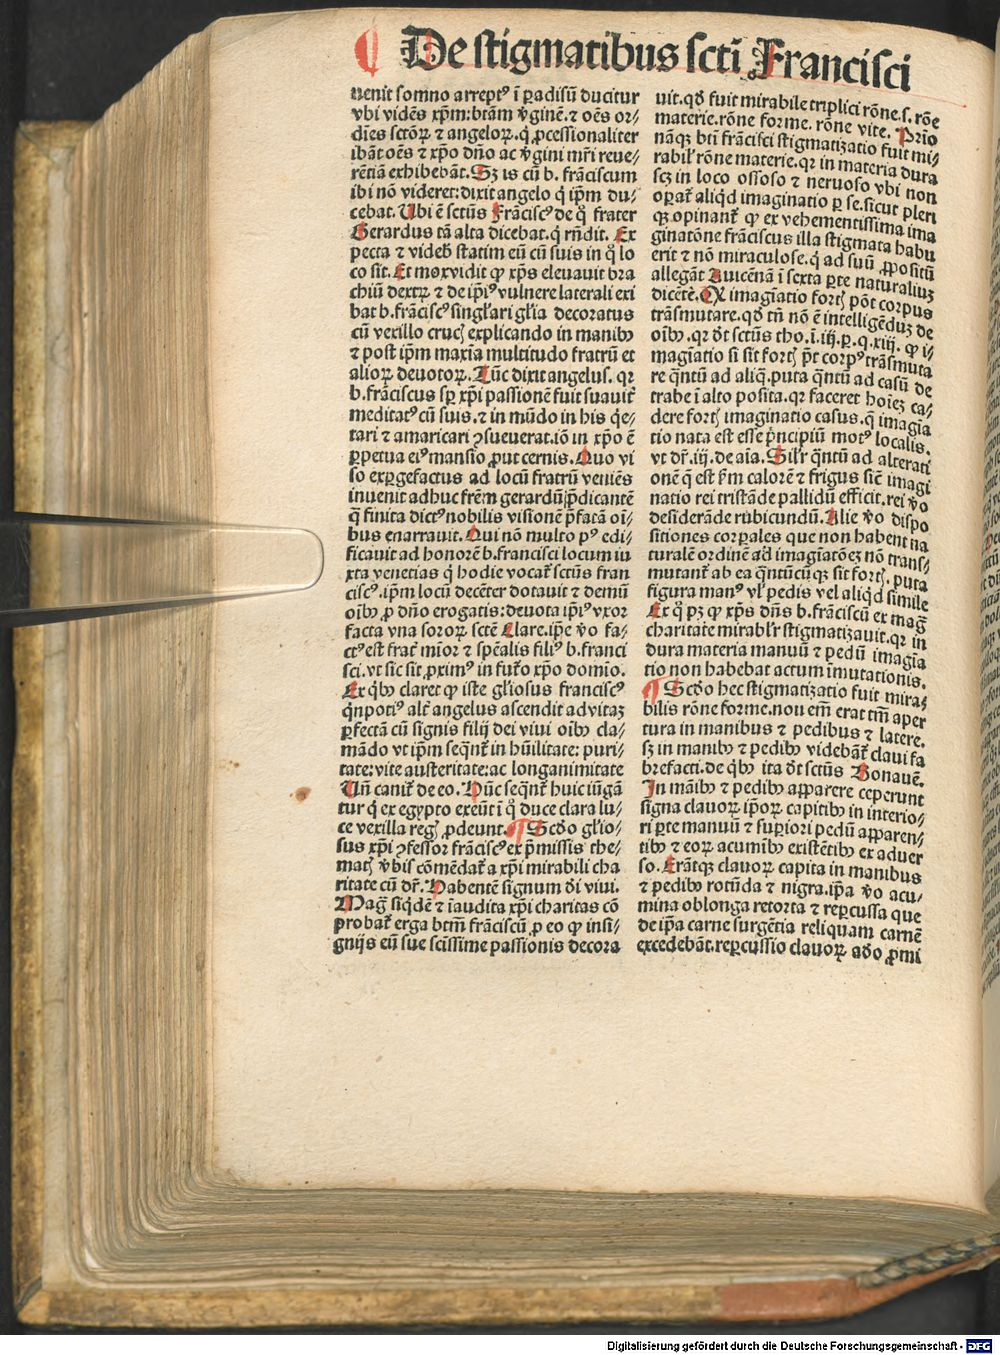 De stigmatibus scti Francisci
uenit somno arreptꝰ ī ꝑadisū ducitur
vbi vidēs xp̄m: btām ꝟginē. ⁊ oēs or⸗
dīes sctōꝝ ⁊ angeloꝝ. q̇ ꝓcessionaliter
ibāt oēs ⁊ xp̄o dn̄o ac ꝟgini mr̄i reue⸗
rētiā exhibebāt. Sꝫ is cū b. frāciscum
ibi nō videret: dixit angelo q̇ ip̄m du⸗
cebat. Ubi ē sctūs Frāciscꝰ de qͦ frater
Gerardus tā alta dicebat. q̇ rn̄dit. Ex
pecta ⁊ videb̄ statim eū cū suis in qͦ lo
co sit. Et mox vidit ꝙ xp̄s eleuauit bra
chiū dextꝝ ⁊ de ip̄iꝰ vulnere laterali exi
bat b. frāciscꝰ singl̄ari gl̄ia decoratus
cū vexillo crucꝭ explicando in manibꝰ
⁊ post ip̄m maxīa multitudo fratrū et
alioꝝ deuotoꝝ. Tūc dixit angelus. qꝛ
b. franciscus sꝑ xp̄i passionē fuit suauiť
meditatꝰ cū suis. ⁊ in mūdo in his q̇e⸗
tari ⁊ amaricari ꝯsueuerat. iō in xp̄o ē
ꝑpetua eiꝰ mansio ꝓut cernis. Quo vi
so exꝑgefactus ad locū fratrū veniēs
inuenit adhuc frēm gerardū p̄dicantē
q̄ finita dictꝰ nobilis visionē p̄fatā oī⸗
bus enarrauit. Qui nō multo pꝰ edi⸗
ficauit ad honorē b. francisci locum iu
xta venetias q̇ hodie vocať sctūs fran
ciscꝰ. ip̄m locū decēter dotauit ⁊ demū
oībꝰ ꝓ dn̄o erogatis: deuota ip̄iꝰ vxor
facta vna soroꝝ sctē Clare. ip̄e ꝟo fa⸗
ctꝰ est frať mīor ⁊ sp̄ealis filiꝰ b. franci
sci. vt sic sit ꝓximꝰ in futꝰo xp̄o domīo.
Ex qͥbꝰ claret ꝙ iste gl̄iosus franciscꝰ
qͣnpotiꝰ alť angelus ascendit ad vitaꝫ
ꝑfectā cū signis filij dei viui oībꝰ cla⸗
mādo vt ip̄m seqͣnť in hūilitate: puri⸗
tate: vite austeritate: ac longanimitate
Un̄ caniť de eo. Hūc seqͣnť huic iūgā
tur q̇ ex egypto exeūt ī qͦ duce clara lu⸗
ce vexilla regꝭ ꝓdeunt. ¶ Scd̄o gl̄io⸗
sus xp̄i ꝯfessor frāciscꝰ ex p̄missis the⸗
matꝭ ꝟbis cōmēdať a xp̄i mirabili cha
ritate cū dr̄. Habentē signum di viui.
Maḡ siqͥdē ⁊ īaudita xp̄i charitas cō
probať erga btm̄ frāciscū ꝓ eo ꝙ insi⸗
gnijs eū sue scissime passionis decora
uit. qd̄ fuit mirabile triplici rōne. s. rōe
materie. rōne forme. rōne vite. Prīo
nāqꝫ btī frācisci stigmatizatio fuit mi⸗
rabil̄ rōne materie. qꝛ in materia dura
scꝫ in loco ossoso ⁊ neruoso vbi non
oꝑať aliqͥd imaginatio ꝑ se. sicut pleri
qꝫ opinanť ꝙ ex vehementissima ima
ginatōne frāciscus illa stigmata habu
erit ⁊ nō miraculose. q̇ ad suū ꝓpositū
allegāt Auicēnā ī sexta ꝑte naturaliuꝫ
dicētē. Qꝙ imagīatio fortꝭ pōt corpus
trāsmutare. qd̄ tn̄ nō ē intelligēduꝫ de
oībꝰ. qꝛ dt̄ sctūs tho. ī. iij. ꝑ. q. xiij. ꝙ i⸗
magiatio si sit fortꝭ pt̄ corpꝰ trāsmuta
re qͣntū ad aliq̄. puta qͣntū ad casū de
trabe ī alto posita. qꝛ faceret hoīeꝫ ca⸗
dere fortꝭ imaginatio casus. q̄ imagīa
tio nata est esse p̄ncipiū motꝰ localis.
vt dr̄. iij. de aīa. Sil̄r qͣntū ad alterati
onē q̄ est s̄m calorē ⁊ frigus sic̄ imagi
natio rei tristāde pallidū efficit. rei ꝟo
desiderāde rubicundū. Alie ꝟo dispo
sitiones corꝑales que non habent na
turalē ordinē ad imagīatōeꝫ nō trans⸗
mutanť ab ea qͣntūcūqꝫ sit fortꝭ. puta
figura manꝰ vl̄ pedis vel aliqͥd simile
Ex qͦ pꝫ ꝙ xp̄s dn̄s b. frāciscū ex maḡ
charitate mirabl̄r stigmatizauit. qꝛ in
dura materia manuū ⁊ pedū imagīa
tio non habebat actum īmutationis.
¶ Scd̄o hec stigmatizatio fuit mira⸗
bilis rōne forme. non em̄ erat tm̄ aper
tura in manibus ⁊ pedibus ⁊ latere.
sꝫ in manibꝰ ⁊ pedibꝰ videbāť claui fa
brefacti. de qͥbꝰ ita dt̄ sctūs Bonauē.
In maībꝰ ⁊ pedibꝰ apparere ceperunt
signa clauoꝝ ip̄oꝝ capitibꝰ in interio⸗
ri ꝑte manuū ⁊ suꝑiori pedū apparen⸗
tibꝰ ⁊ eoꝝ acumībꝰ existētibꝰ ex aduer
so. Erātqꝫ clauoꝝ capita in manibus
⁊ pedibꝰ rotūda ⁊ nigra. ip̄a ꝟo acu⸗
mina oblonga retorta ⁊ reꝑcussa que
de ip̄a carne surgētia reliquam carnē
excedebāt. reꝑcussio clauoꝝ ado ꝓmi
Digitalisierung gefördert durch die Deutsche Forschungsgemeinschaft - DFG